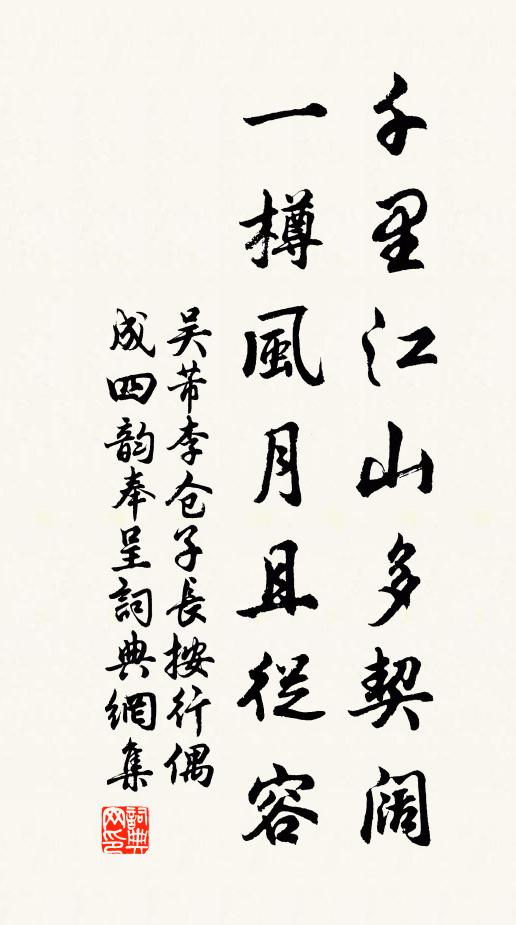 千里江山多契阔
一樽風月且從容
吴芾李仓子長按行偶
成四韵奉呈詞典網集
詞典网印